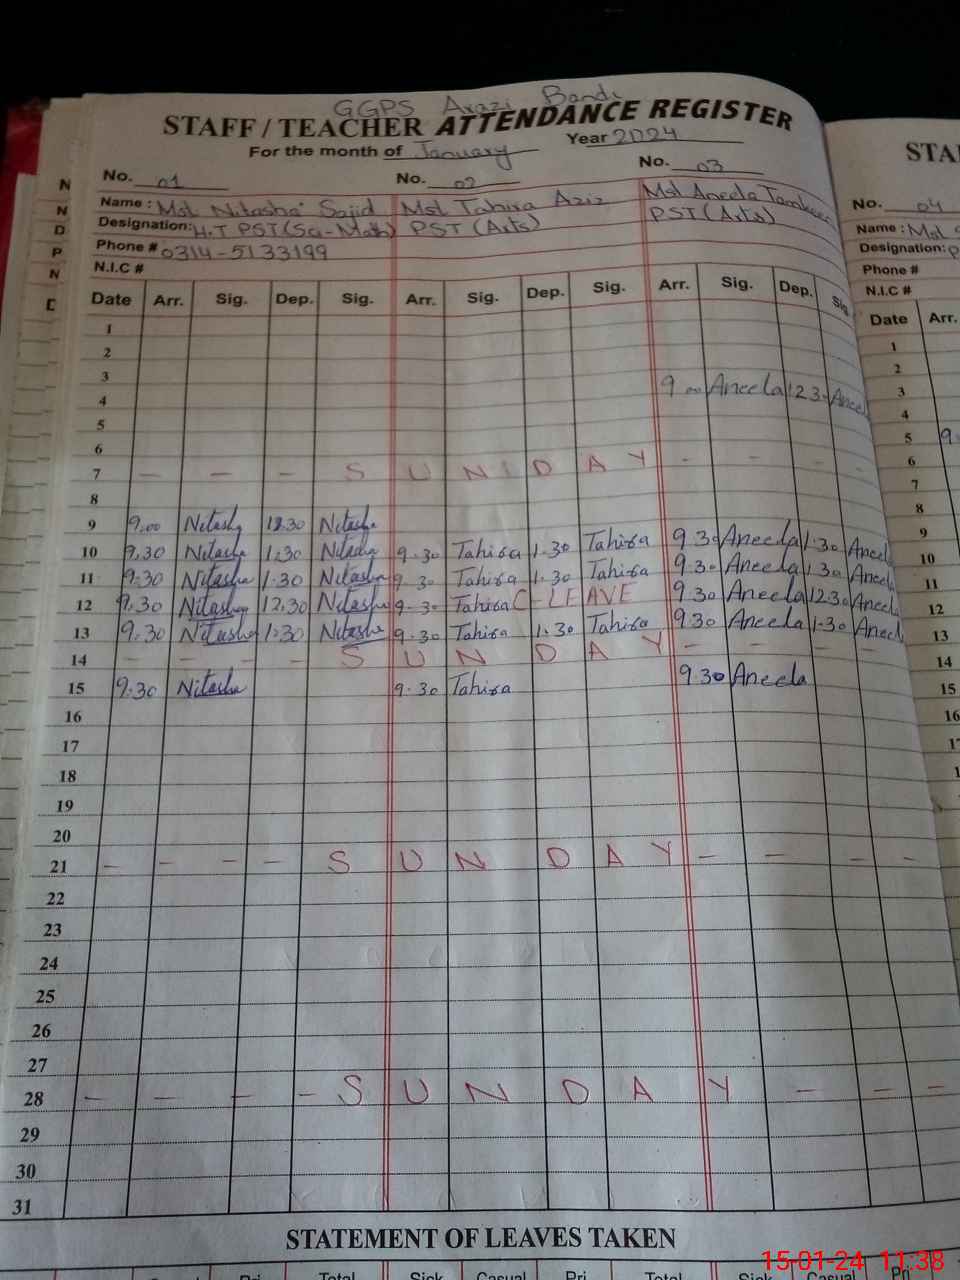 GGPS Arazi Bandi
STAFF / TEACHER ATTENDANCE REGISTER
For the month of January Year 2024
No. 01 No. 02 No. 03
Name : Mst Nitasha Sajid Mst Tahira Aziz Mst Aneela
Designation: H.T PST (Sci-Math) PST (Arts) PST (Arts)
Phone # 0314-5133199
N.I.C #
Date Arr. Sig. Dep. Sig. Arr. Sig. Dep. Sig. Arr. Sig. Dep. Sig.
1
2
3
4 9.00 Aneela 12.30 Aneela
5
6
7 - - - S U N D A Y - - - -
8
9 9.00 Nitasha 12.30 Nitasha
10 9.30 Nitasha 1.30 Nitasha 9.30 Tahira 1.30 Tahira 9.30 Aneela 1.30 Aneel
11 9.30 Nitasha 1.30 Nitasha 9.30 Tahira 1.30 Tahira 9.30 Aneela 1.30 Aneela
12 9.30 Nitasha 12.30 Nitasha 9.30 Tahira C-LEAVE 9.30 Aneela 12.30 Aneela
13 9.30 Nitasha 1.30 Nitasha 9.30 Tahira 1.30 Tahira 9.30 Aneela 1.30 Aneel
14 - - - - S U N D A Y - - - -
15 9.30 Nitasha 9.30 Tahira 9.30 Aneela
16
17
18
19
20
21 - - - - S U N D A Y - - - -
22
23
24
25
26
27
28 - - - - S U N D A Y - - -
29
30
31
STATEMENT OF LEAVES TAKEN
Casual Pri Total Sick Casual Pri Total Sick Casual Pri
STA
No. 04
Name : Mst
Designation: P
Phone #
N.I.C #
Date Arr.
1
2
3
4
5 9
6
7
8
9
10
11
12
13
14
15
16
17
18
15-01-24 11:38